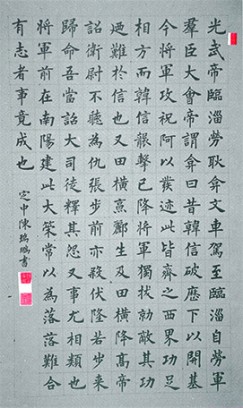 光武帝臨淄勞耿弇文車駕至臨淄自勞軍
羣臣大會帝謂弇曰昔韓信破歷下以開基
今將軍攻祝阿以發迹此皆齊之西界功足
相方而韓信襲擊已降將軍獨拔勍敵其功
迺難於信也又田橫烹酈生及田橫降高帝
詔衛尉不聽為仇張步前亦殺伏隆若步來
歸命吾當詔大司徒釋其怨又事尤相類也
將軍前在南陽建此大策常以為落落難合
有志者事竟成也
中陳瑞鵬書